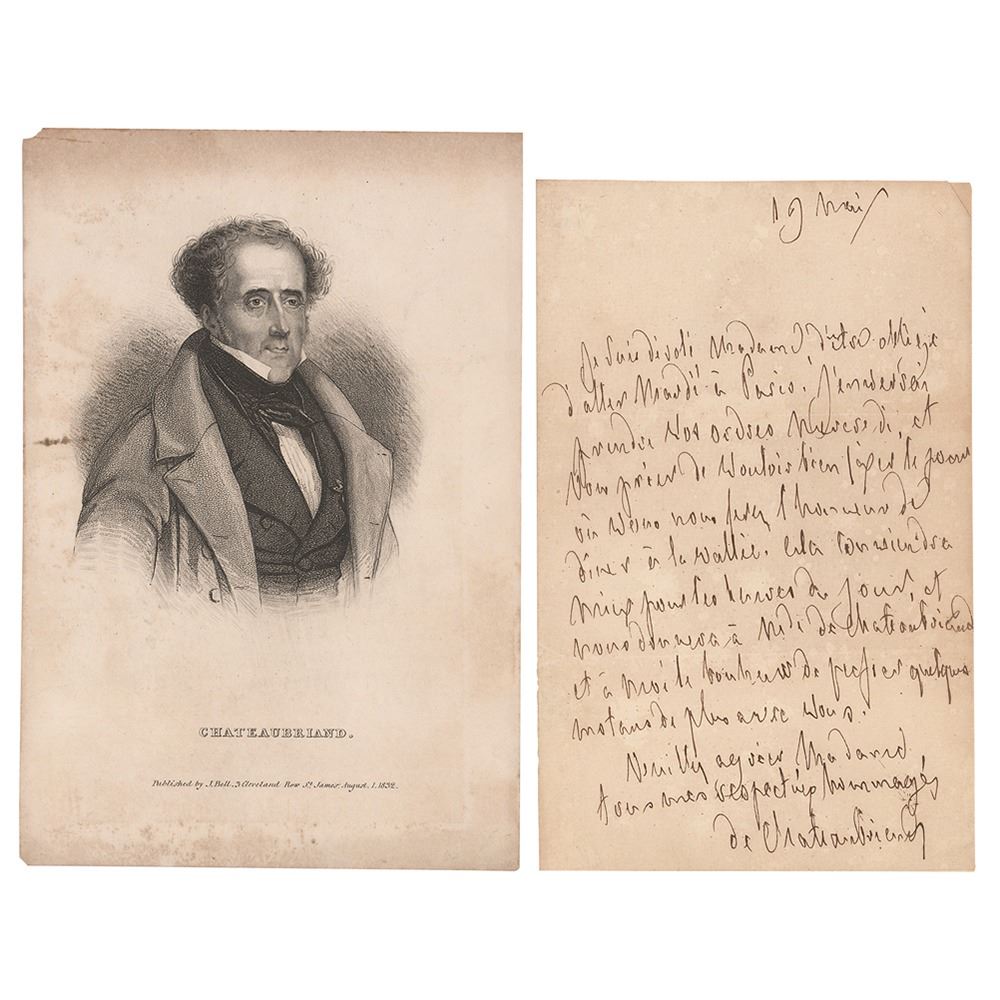 CHATEAUBRIAND.
Published by J. Bell. 3 Cleveland Row St. James. August. 1. 1832.
19 Mai
Je suis désolé Madame d'être obligé
d'aller Mardi à Paris. J'irai
prendre vos ordres Mercredi, et
vous prier de vouloir bien fixer le jour
où vous nous ferez l'honneur de
dîner à la vallée. Cela conviendra
mieux pour les heures du jour, et
nous donnera à Mde de Chateaubriand
et à moi le bonheur de passer quelques
instans de plus avec vous.
Veuillez agréer Madame
tous mes respectueux hommages
de Chateaubriand